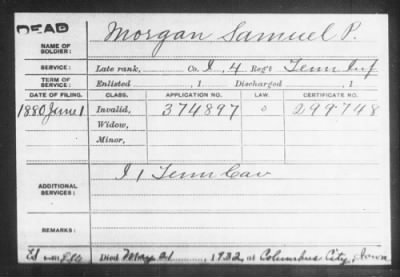 DEAD
NAME OF SOLDIER: Morgan Samuel P.
SERVICE: Late rank, Co. I, 4 Reg't Tenn Inf
TERM OF SERVICE: Enlisted , 1 Discharged , 1
DATE OF FILING. CLASS. APPLICATION NO. LAW. CERTIFICATE NO.
1880 June 1 Invalid, 374897 299748
Widow,
Minor,
ADDITIONAL SERVICES: I 1 Tenn Cav
REMARKS:
Died May 21, 1922, at Columbus City, Iowa